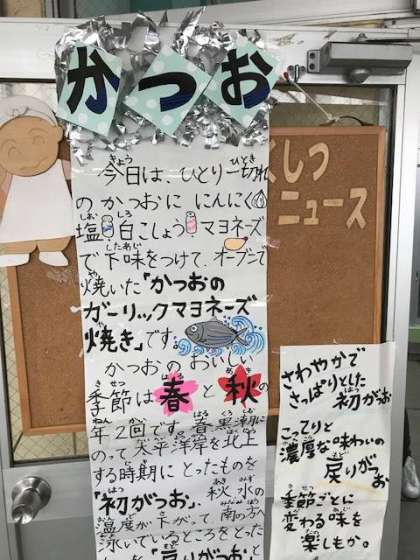 かつお
今日は、ひとり一切れ
のかつおに にんにく
塩 白こしょう マヨネーズ
で下味をつけて、オーブンで
焼いた「かつおの
ガーリックマヨネーズ
焼き」です。
かつおのおいしい
季節は春と秋の
年2回です。春、黒潮に
のって太平洋岸を北上
する時期にとったものを
「初がつお」、秋、水の
温度が下がって南の方へ
泳いでいるところをとった
「戻りがつお」
くしつ
ニュース
さわやかで
さっぱりとした
初がつお
こってりと
濃厚な味わいの
戻りがつお
季節ごとに
変わる味を
楽しもか。